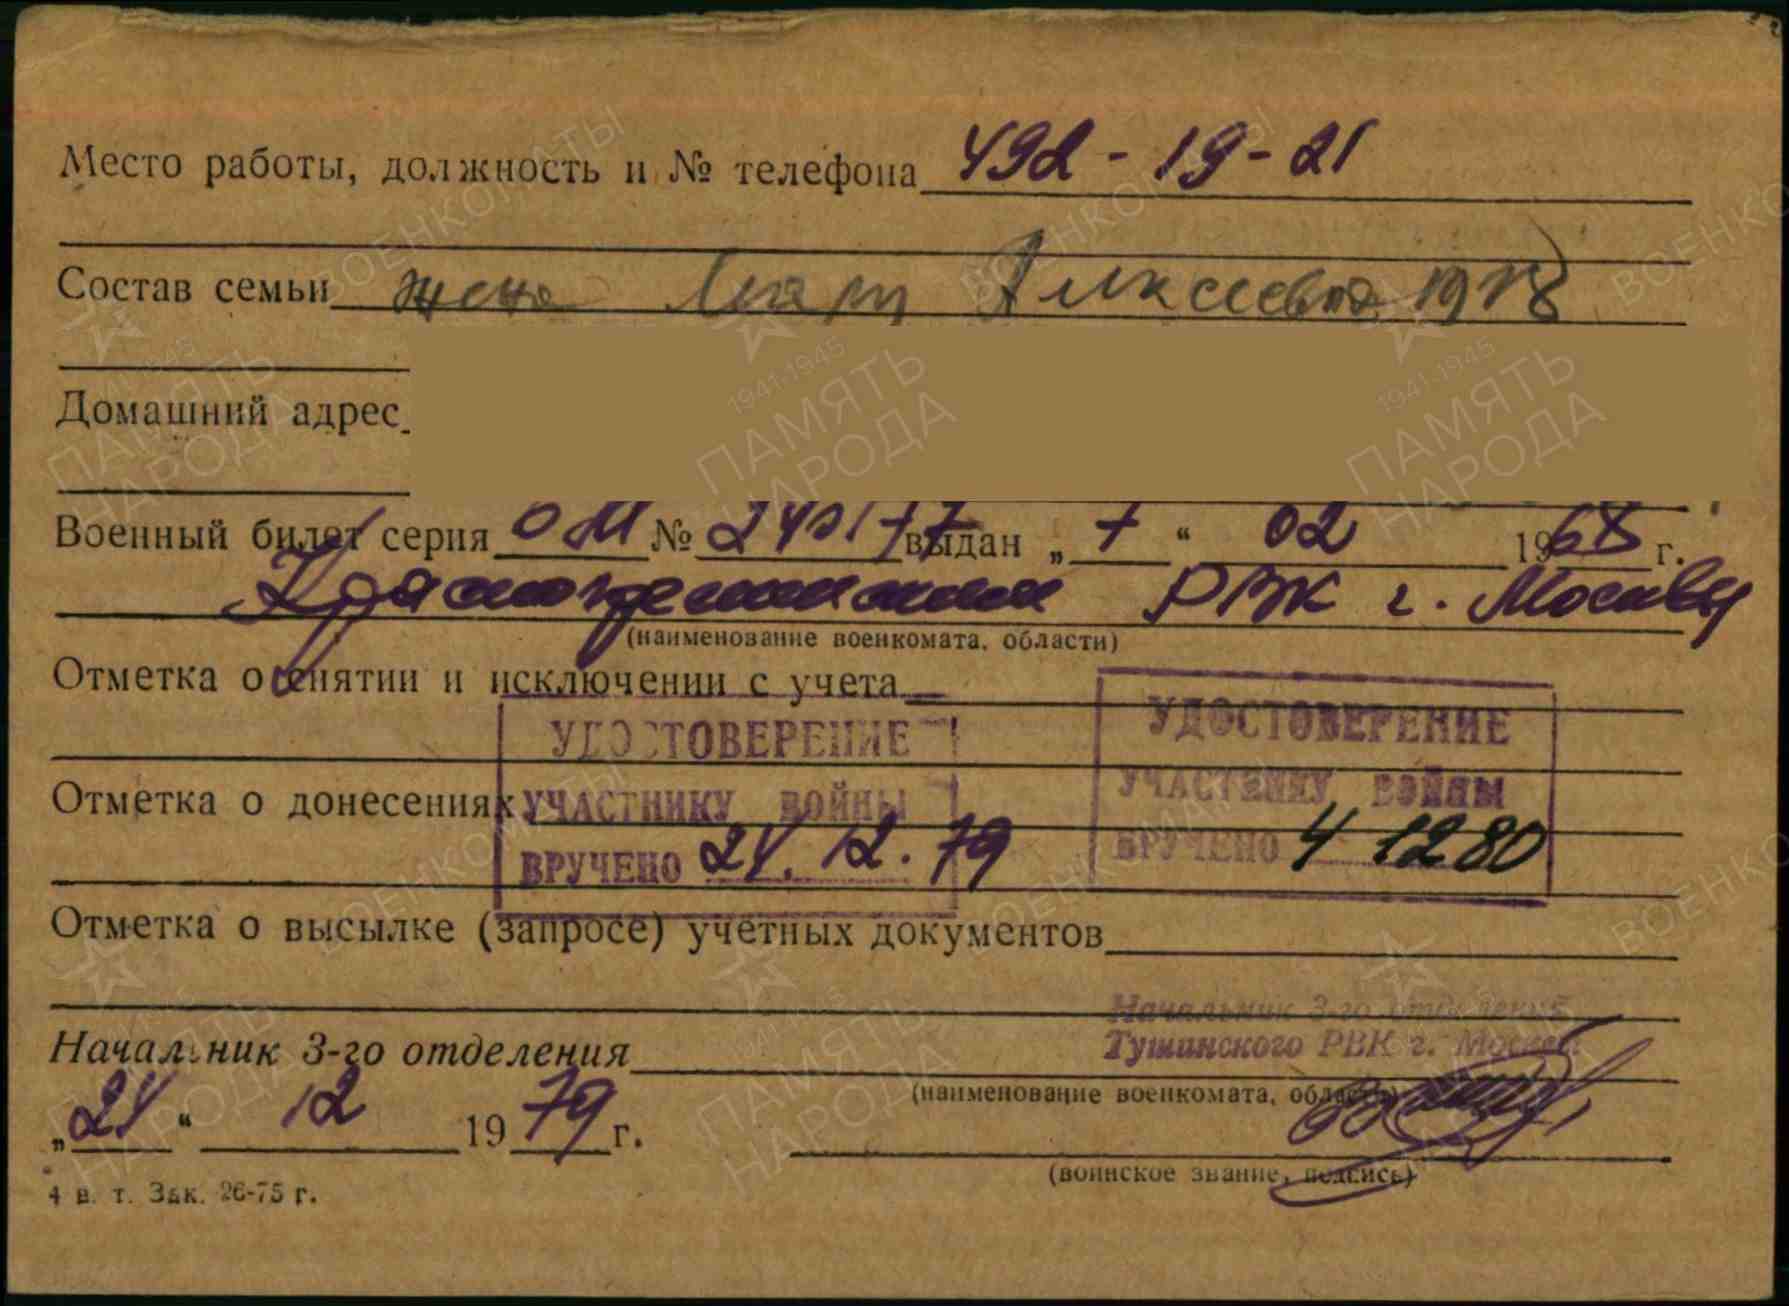 Место работы, должность и № телефона 492-19-21
Состав семьи жена Алексеевна 1918
Домашний адрес
Военный билет серия ОМ № выдан „7“ 02 1968 г.
Краснопресненским РВК г. Москвы
(наименование военкомата, области)
Отметка о снятии и исключении с учета
УДОСТОВЕРЕНИЕ
УЧАСТНИКУ ВОЙНЫ
ВРУЧЕНО 24.12.79
УДОСТОВЕРЕНИЕ
УЧАСТНИКУ ВОЙНЫ
ВРУЧЕНО 4 12 80
Отметка о донесениях
Отметка о высылке (запросе) учетных документов
Начальник 3-го отделения
Начальник 3-го отделения
Тушинского РВК г. Москвы
(наименование военкомата, области)
„24“ 12 1979 г.
(воинское звание, подпись)
4 в. т. Зак. 26-75 г.
ВОЕНКОМАТЫ
1941-1945
ПАМЯТЬ
НАРОДА